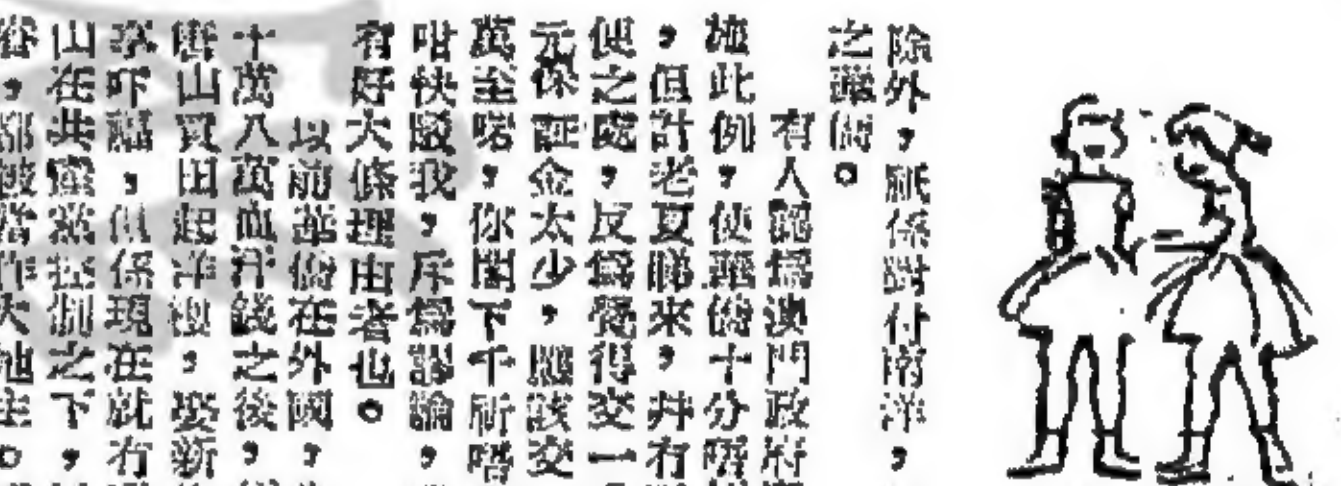 除外，祇係對付南洋，
之華僑。
有人認爲澳門政府
施此例，使華僑十分唔
，但計老夏睇來，幷有
便之處，反爲覺得交一
元保証金太少，應該交
萬至啱，你閣下千祈唔
咁快駁我，斥爲謬論，
有好大條理由者也。
以前華僑在外國，
十萬八萬血汗錢之後，
唐山買田起洋樓，娶新
享吓福，但係現在就冇
山在共黨控制之下，
都被當作大地主。